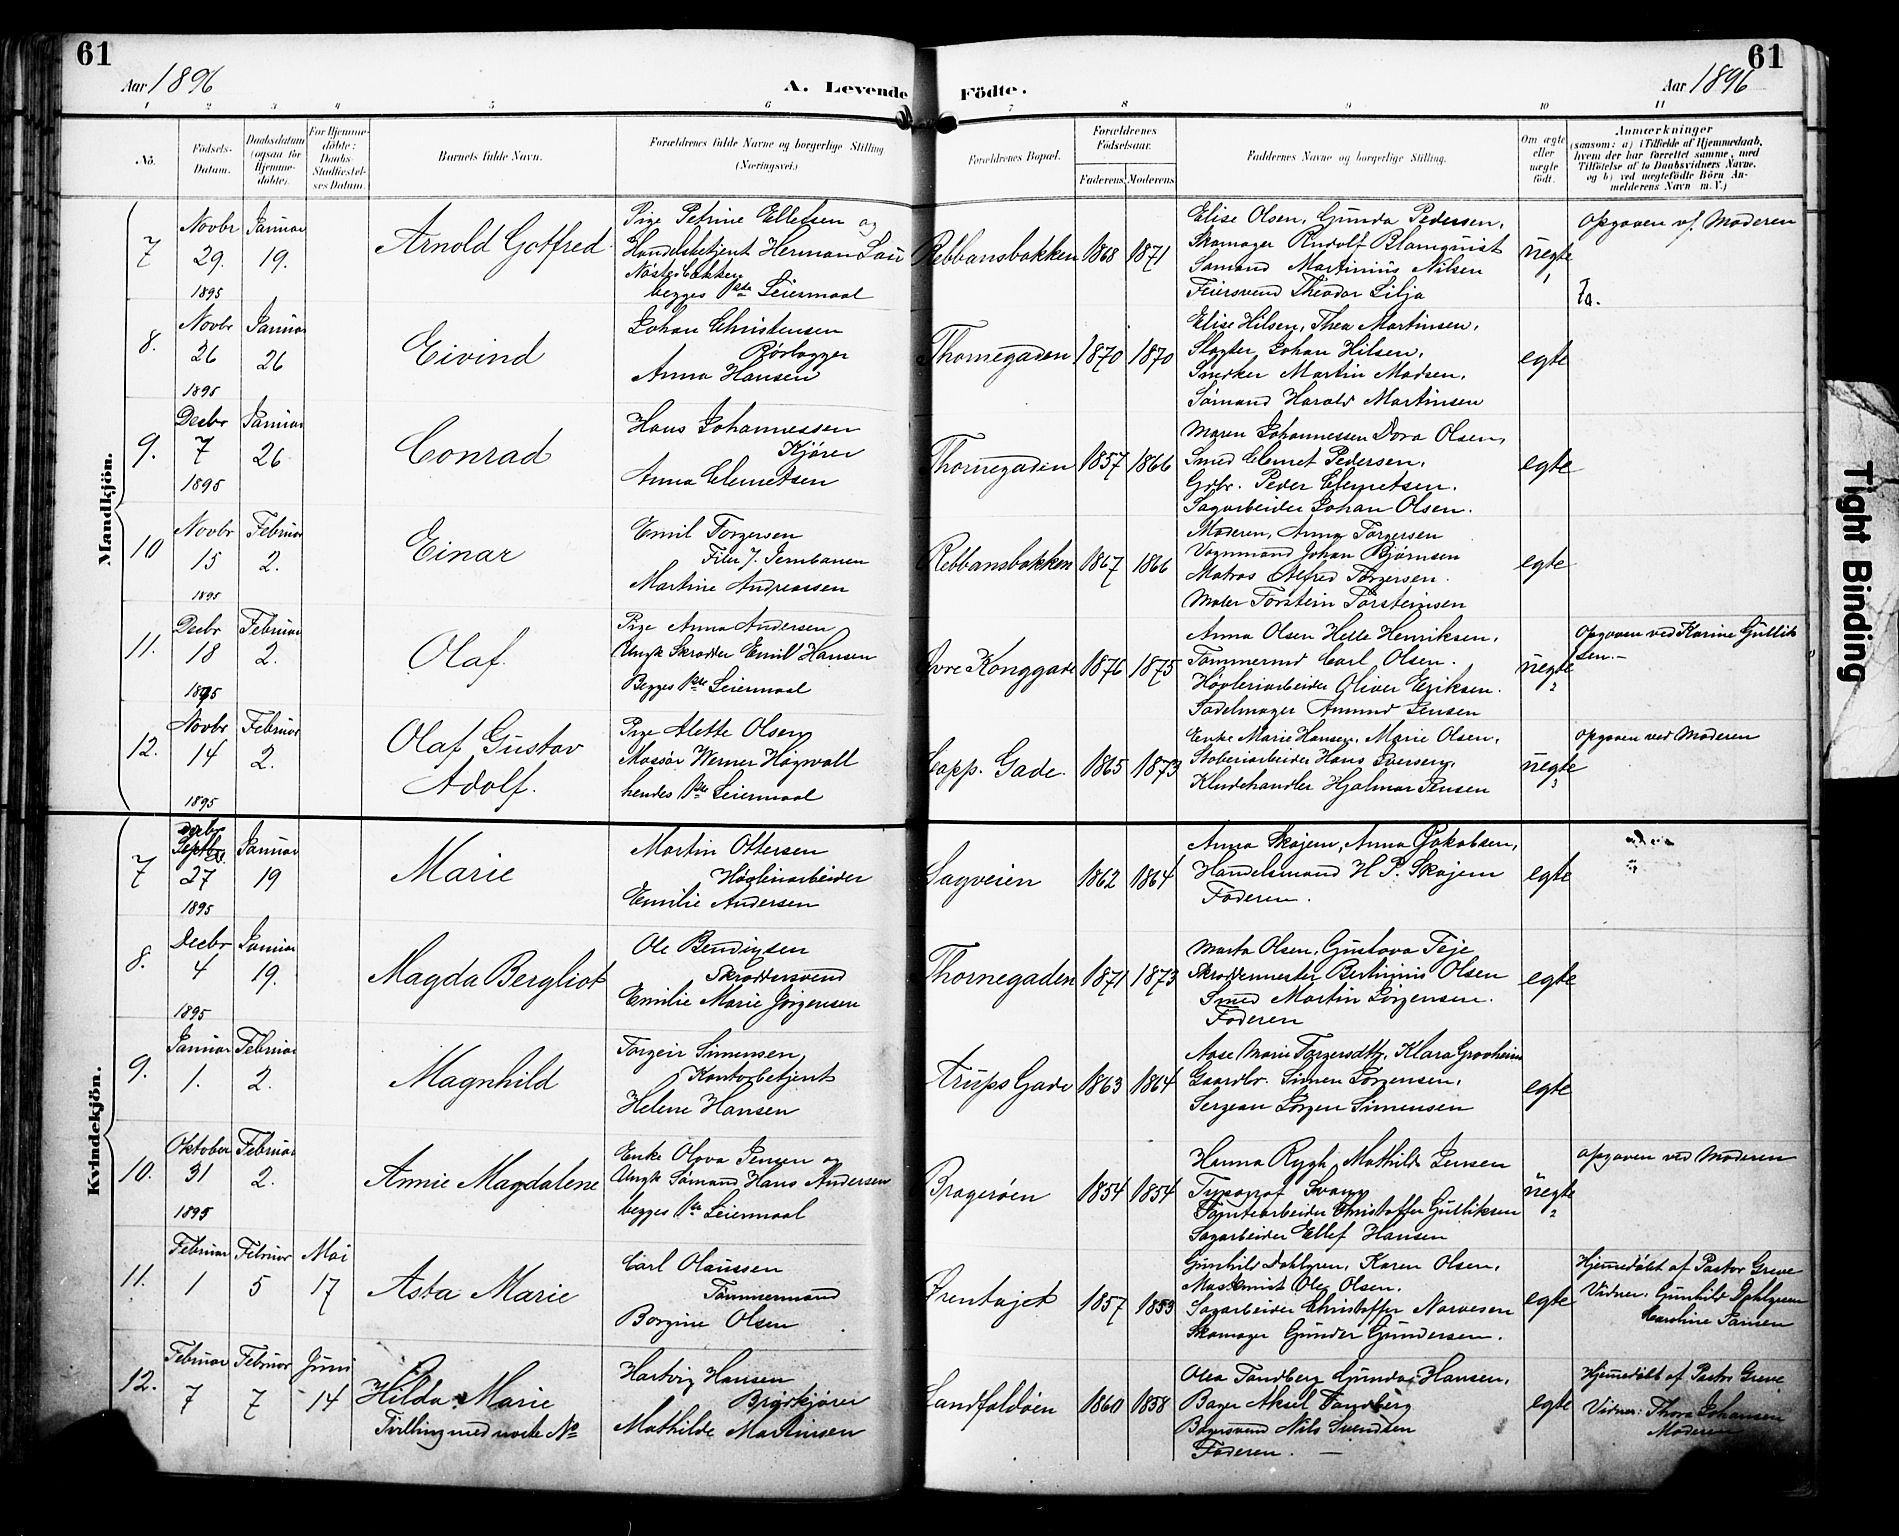 61
Aar 1896
A. Levende Födte.
61
Aar 1896
1 2 3 4 5 6 7 8 9 10 11
No.
Födsels-Datum.
Daabsdatum (ogsaa for Hjemme-döbte).
For Hjemme-döbte: Daabs-Stadfæstel-ses Datum.
Barnets fulde Navn.
Forældrenes fulde Navne og borgerlige Stilling
(Næringsvei)
Forældrenes Bopæl.
Forældrenes Födselsaar.
Faderens. Moderens.
Faddernes Navne og borgerlige Stilling.
Om ægte eller uægte födt.
Anmærkninger
(saasom: a) i Tilfælde af Hjemmedaab,
hvem der har forrettet samme, med
Tilföielse af to Daabsvidners Navne.
og b) ved uægtefödte Börn An-
melderens Navn m. V.)
Mandkjön.
7
Novbr 29. 1895
Januar 19.
Arnold Gotfred
Pige Petrine Ellefsen og
Handelsbetjent Herman Lau
begges 1ste Leiermaal
Rebbansbakken
1868 1871
Elise Olsen, Gunda Pedersen,
Skomager Rudolf Blomquist
Sømand Martinius Nilsen
Feiersvend Theodor Lilja
uegte
Opgaven v/ Moderen
8.
Novbr 26 1895
Januar 26
Eivind
Johan Christensen
Rørlægger
Anna Hansen
Thornegaden
1870 1870
Elise Hilsen, Thea Martinsen,
Slagter Johan Hilsen,
Snedker Martin Madsen,
Sømand Harald Martinsen
egte
9.
Decbr 7 1895
Januar 26
Conrad
Hans Johannessen
Kjører
Anna Clemetsen
Thornegaden
1857 1866
Maren Johannessen Dora Olsen,
Smed Clemet Pedersen,
Grbr. Peder Clemetsen.
Sagarbeider Johan Olsen.
egte
10
Novbr 15 1895
Februar 2.
Einar
Emil Torgersen
Filer v. Jernbanen
Martine Andreassen
Rebbansbakken
1867 1866
Moderen, Anna Torgersen
Vognmand Johan Bjørnsen
Matros Alfred Torgersen.
Maler Torstein Torsteinsen
egte
11.
Decbr 18 1895
Februar 2.
Olaf.
Pige Anna Andersen
Ungk Skrædder Emil Hansen
Begges 1ste Leiermaal
Øvre Konggade
1876 1875
Anna Olsen Helle Henriksen,
Tømmermd Carl Olsen.
Høvleriarbeider Oliver Eriksen.
Sadelmager Amund Jensen
uegte
Opgaven ved Karine Gullik
sen.-
12.
Novbr 14 1895
Februar 2.
Olaf Gustav
Adolf.
Pige Alette Olsen
Massør Werner Høgwall
hendes 1ste Leiermaal
Capp. Gade.
1865 1873
Enke Marie Hansen, Marie Olsen,
Støberiarbeider Hans Iversen,
Kludehandler Hjalmar Jensen
uegte
Opgaven ved Moderen
Kvindekjön.
7
Septbr 27 1895
Januar 19
Marie
Martin Ottersen
Høvleriarbeider
Emilie Andersen
Sagveien
1862 1864
Anna Skajem, Anna Jakobsen,
Handelsmand H. P. Skajem
Faderen.
egte
8.
Decbr 4 1895
Januar 19.
Magda Bergliot
Ole Bendigsen
Skræddersvend
Emilie Marie Jørgensen
Thornegaden
1871 1873
Marta Olsen, Gustava Teje
Skræddermester Bertinius Olsen
Smed Martin Jørgensen.
Faderen
egte
9.
Januar 1.
Februar 2.
Magnhild
Torgeir Simensen,
Kontorbetjent
Helene Hansen
Arups Gade
1863 1864
Aase Marie Torgersdtr, Klara Grovheim
Gaardbr. Simen Torgensen,
Sergean Jørgen Simensen
egte
10.
Oktober 31 1895
Februar 2.
Annie Magdalene
Enke Olava Jensen og
Ungk Sømand Hans Andersen
begges 1ste Leiermaal
Bragerøen
1854 1854
Hanna Rygh, Mathilde Jensen
Typograf Svang
Tomtearbeider Christoffer Gulliksen
Sagarbeider Ellef Hansen
uegte
Opgaven ved Moderen
11.
Februar 1
Februar 5
Mai 17
Asta Marie
Carl Olaussen
Tømmermand
Borgine Olsen
Ørentajet
1857 1853
Gunhild Dahlgren, Karen Olsen,
Maskinist Ole Olsen.
Sagarbeider Christoffer Narvesen
Skomager Gunder Gundersen.
egte
Hjemmedøbt af Pastor Greve
Vidner, Gunhild Dahlgren
Karoline Jansen
12.
Februar 7
Februar 7
Juni 14
Hilda Marie
Tvilling med næste No
Hartvig Hansen
Brødkjører
Mathilde Martinsen
Landfaldøen
1860 1858
Olea Tandberg Gunda Hansen,
Bager Aksel Tandberg
Bagersvend Nils Svendsen
Faderen. —
egte
Hjemmedøbt af Pastor Greve
Vidner: Thora Johansen
Moderen
Tight Binding